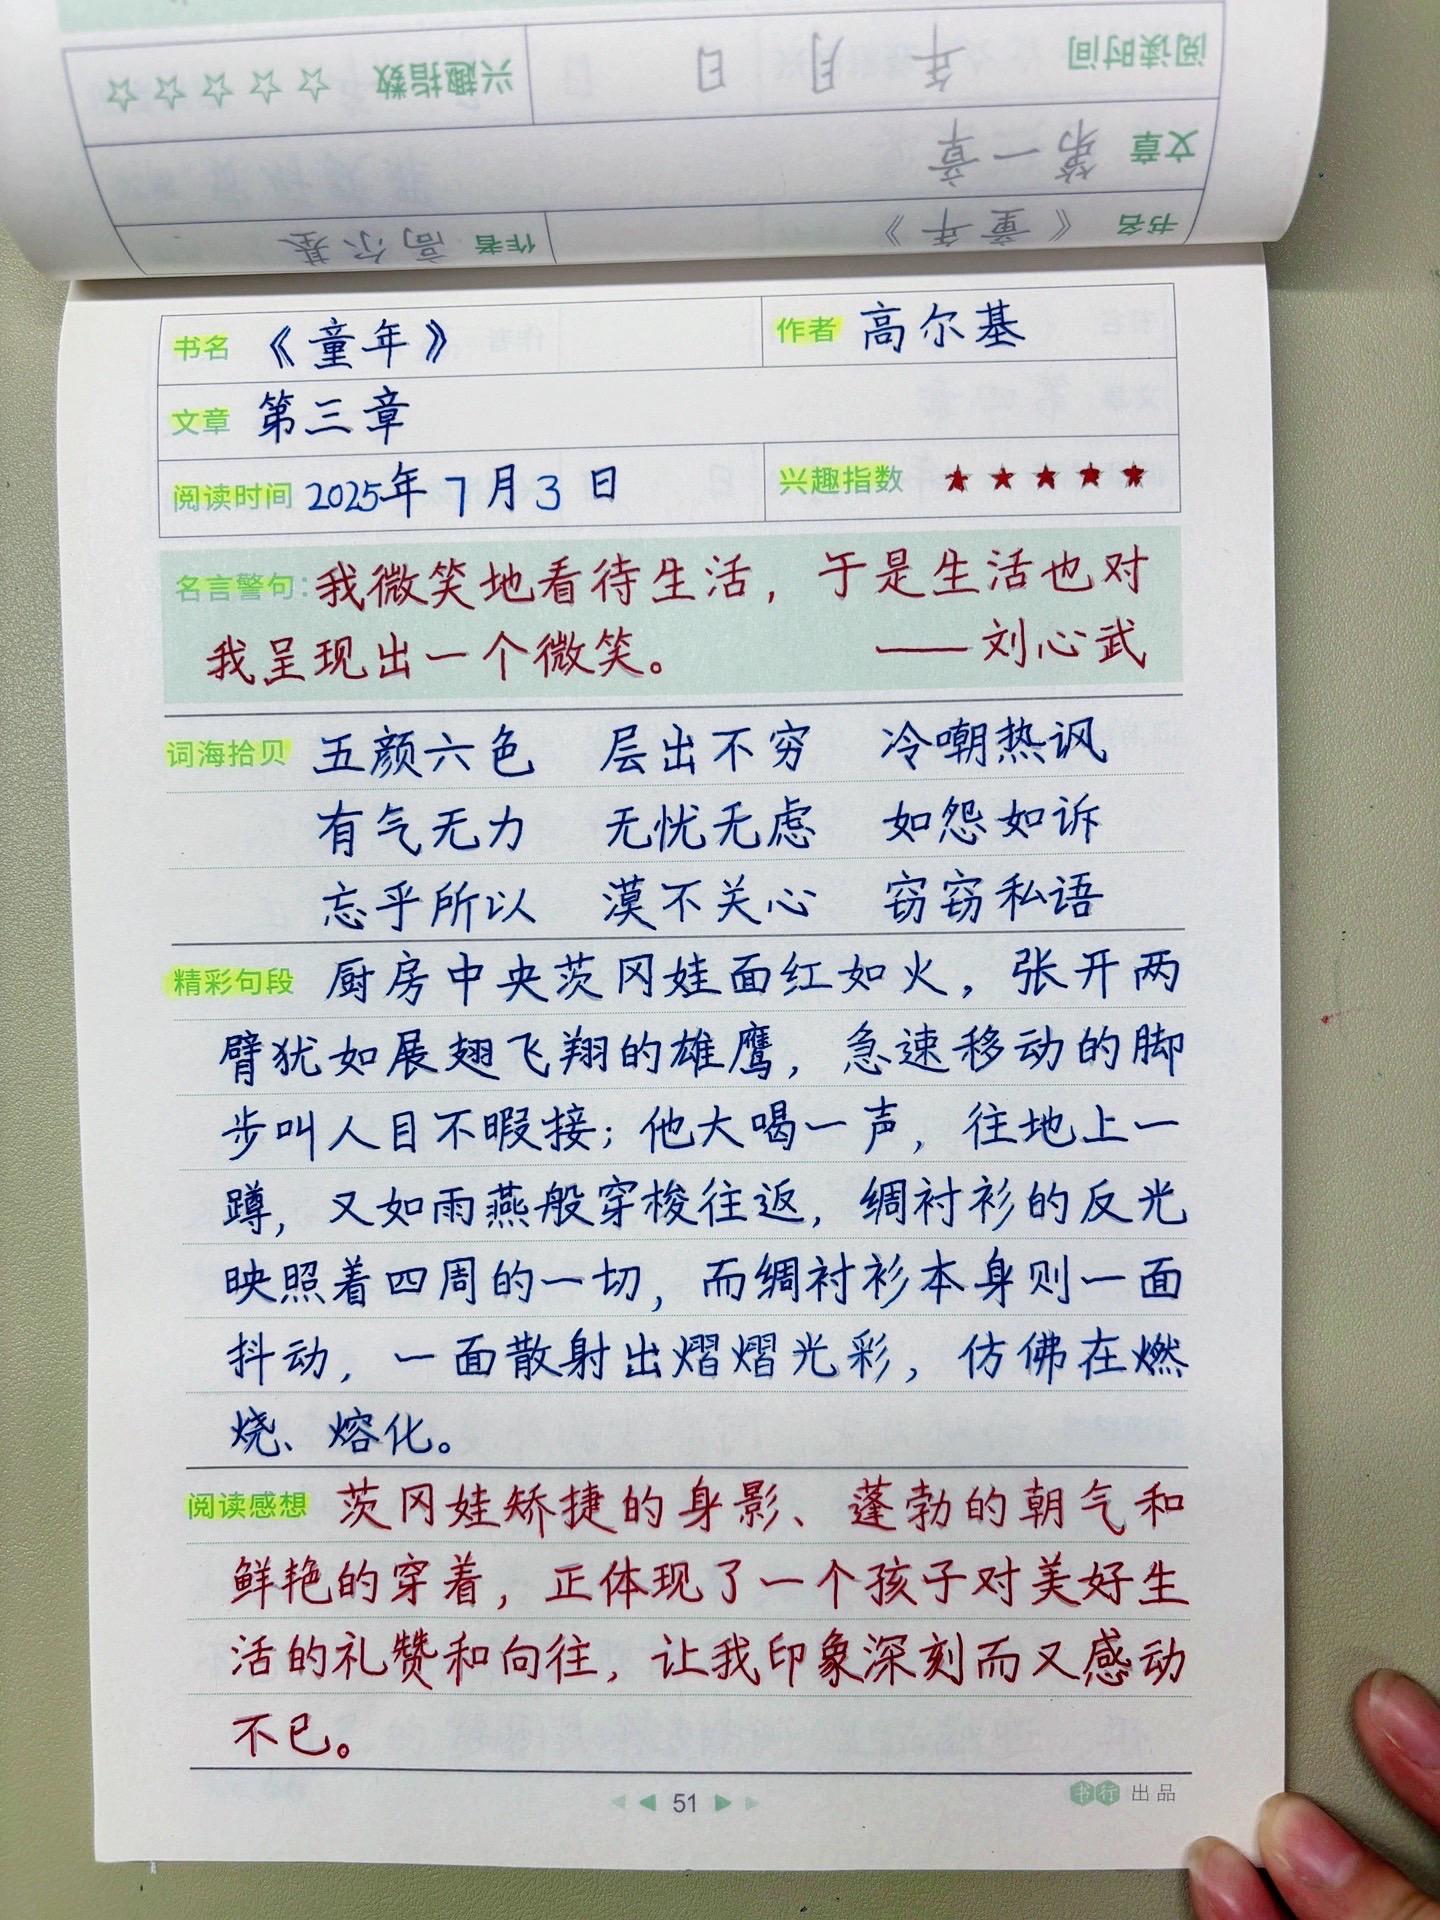 阅读时间 年 月 日 兴趣指数 ☆☆☆☆☆
文章 第一章
书名 《童年》 作者 高尔基
书名 《童年》 作者 高尔基
文章 第三章
阅读时间 2025年7月3日 兴趣指数 ★★★★★
名言警句：我微笑地看待生活，于是生活也对
我呈现出一个微笑。 ——刘心武
词海拾贝 五颜六色 层出不穷 冷嘲热讽
有气无力 无忧无虑 如怨如诉
忘乎所以 漠不关心 窃窃私语
精彩句段 厨房中央茨冈娃面红如火，张开两
臂犹如展翅飞翔的雄鹰，急速移动的脚
步叫人目不暇接；他大喝一声，往地上一
蹲，又如雨燕般穿梭往返，绸衬衫的反光
映照着四周的一切，而绸衬衫本身则一面
抖动，一面散射出熠熠光彩，仿佛在燃
烧、熔化。
阅读感想 茨冈娃矫捷的身影、蓬勃的朝气和
鲜艳的穿着，正体现了一个孩子对美好生
活的礼赞和向往，让我印象深刻而又感动
不已。
51
书行 出品